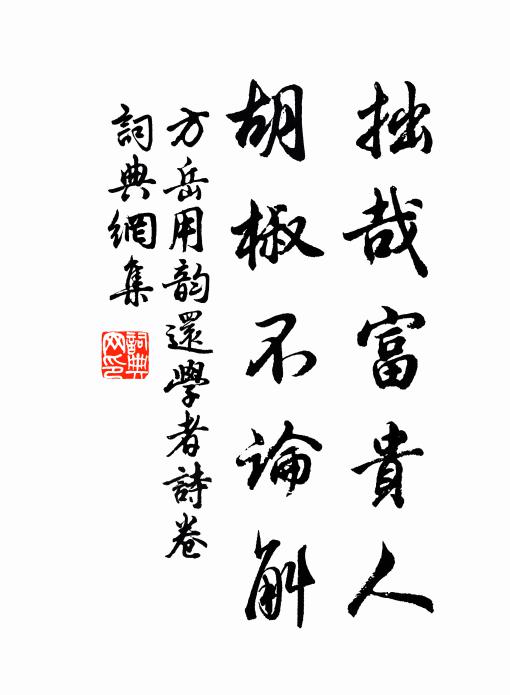 拙哉富貴人
胡椒不論斛
方岳用韵還學者詩卷
詞典網集
詞典
网印